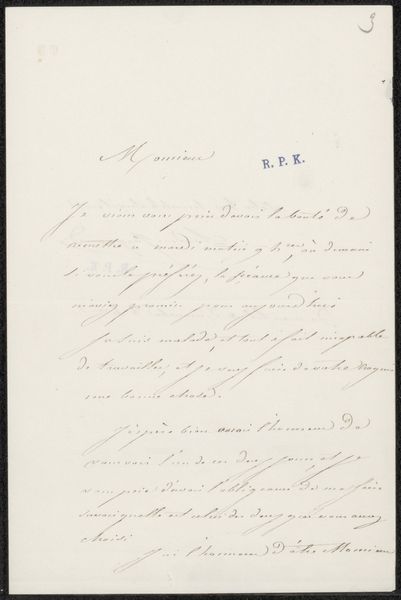 3
Monsieur
R. P. K.
Je viens vous prier d'avoir la bonté de
remettre à mardi matin 9 hres, ou demain
si vous le préférez, la séance que vous
m'aviez promise pour aujourd'hui
Je suis malade et tout à fait incapable
de travailler, et je veux faire de votre
une bonne chose.
J'espère bien avoir l'honneur de
vous voir l'un de ces deux jours, et je
vous prie d'avoir l'obligeance de me faire
savoir quelle est celui des deux que vous aurez
choisi
J'ai l'honneur d'être Monsieur